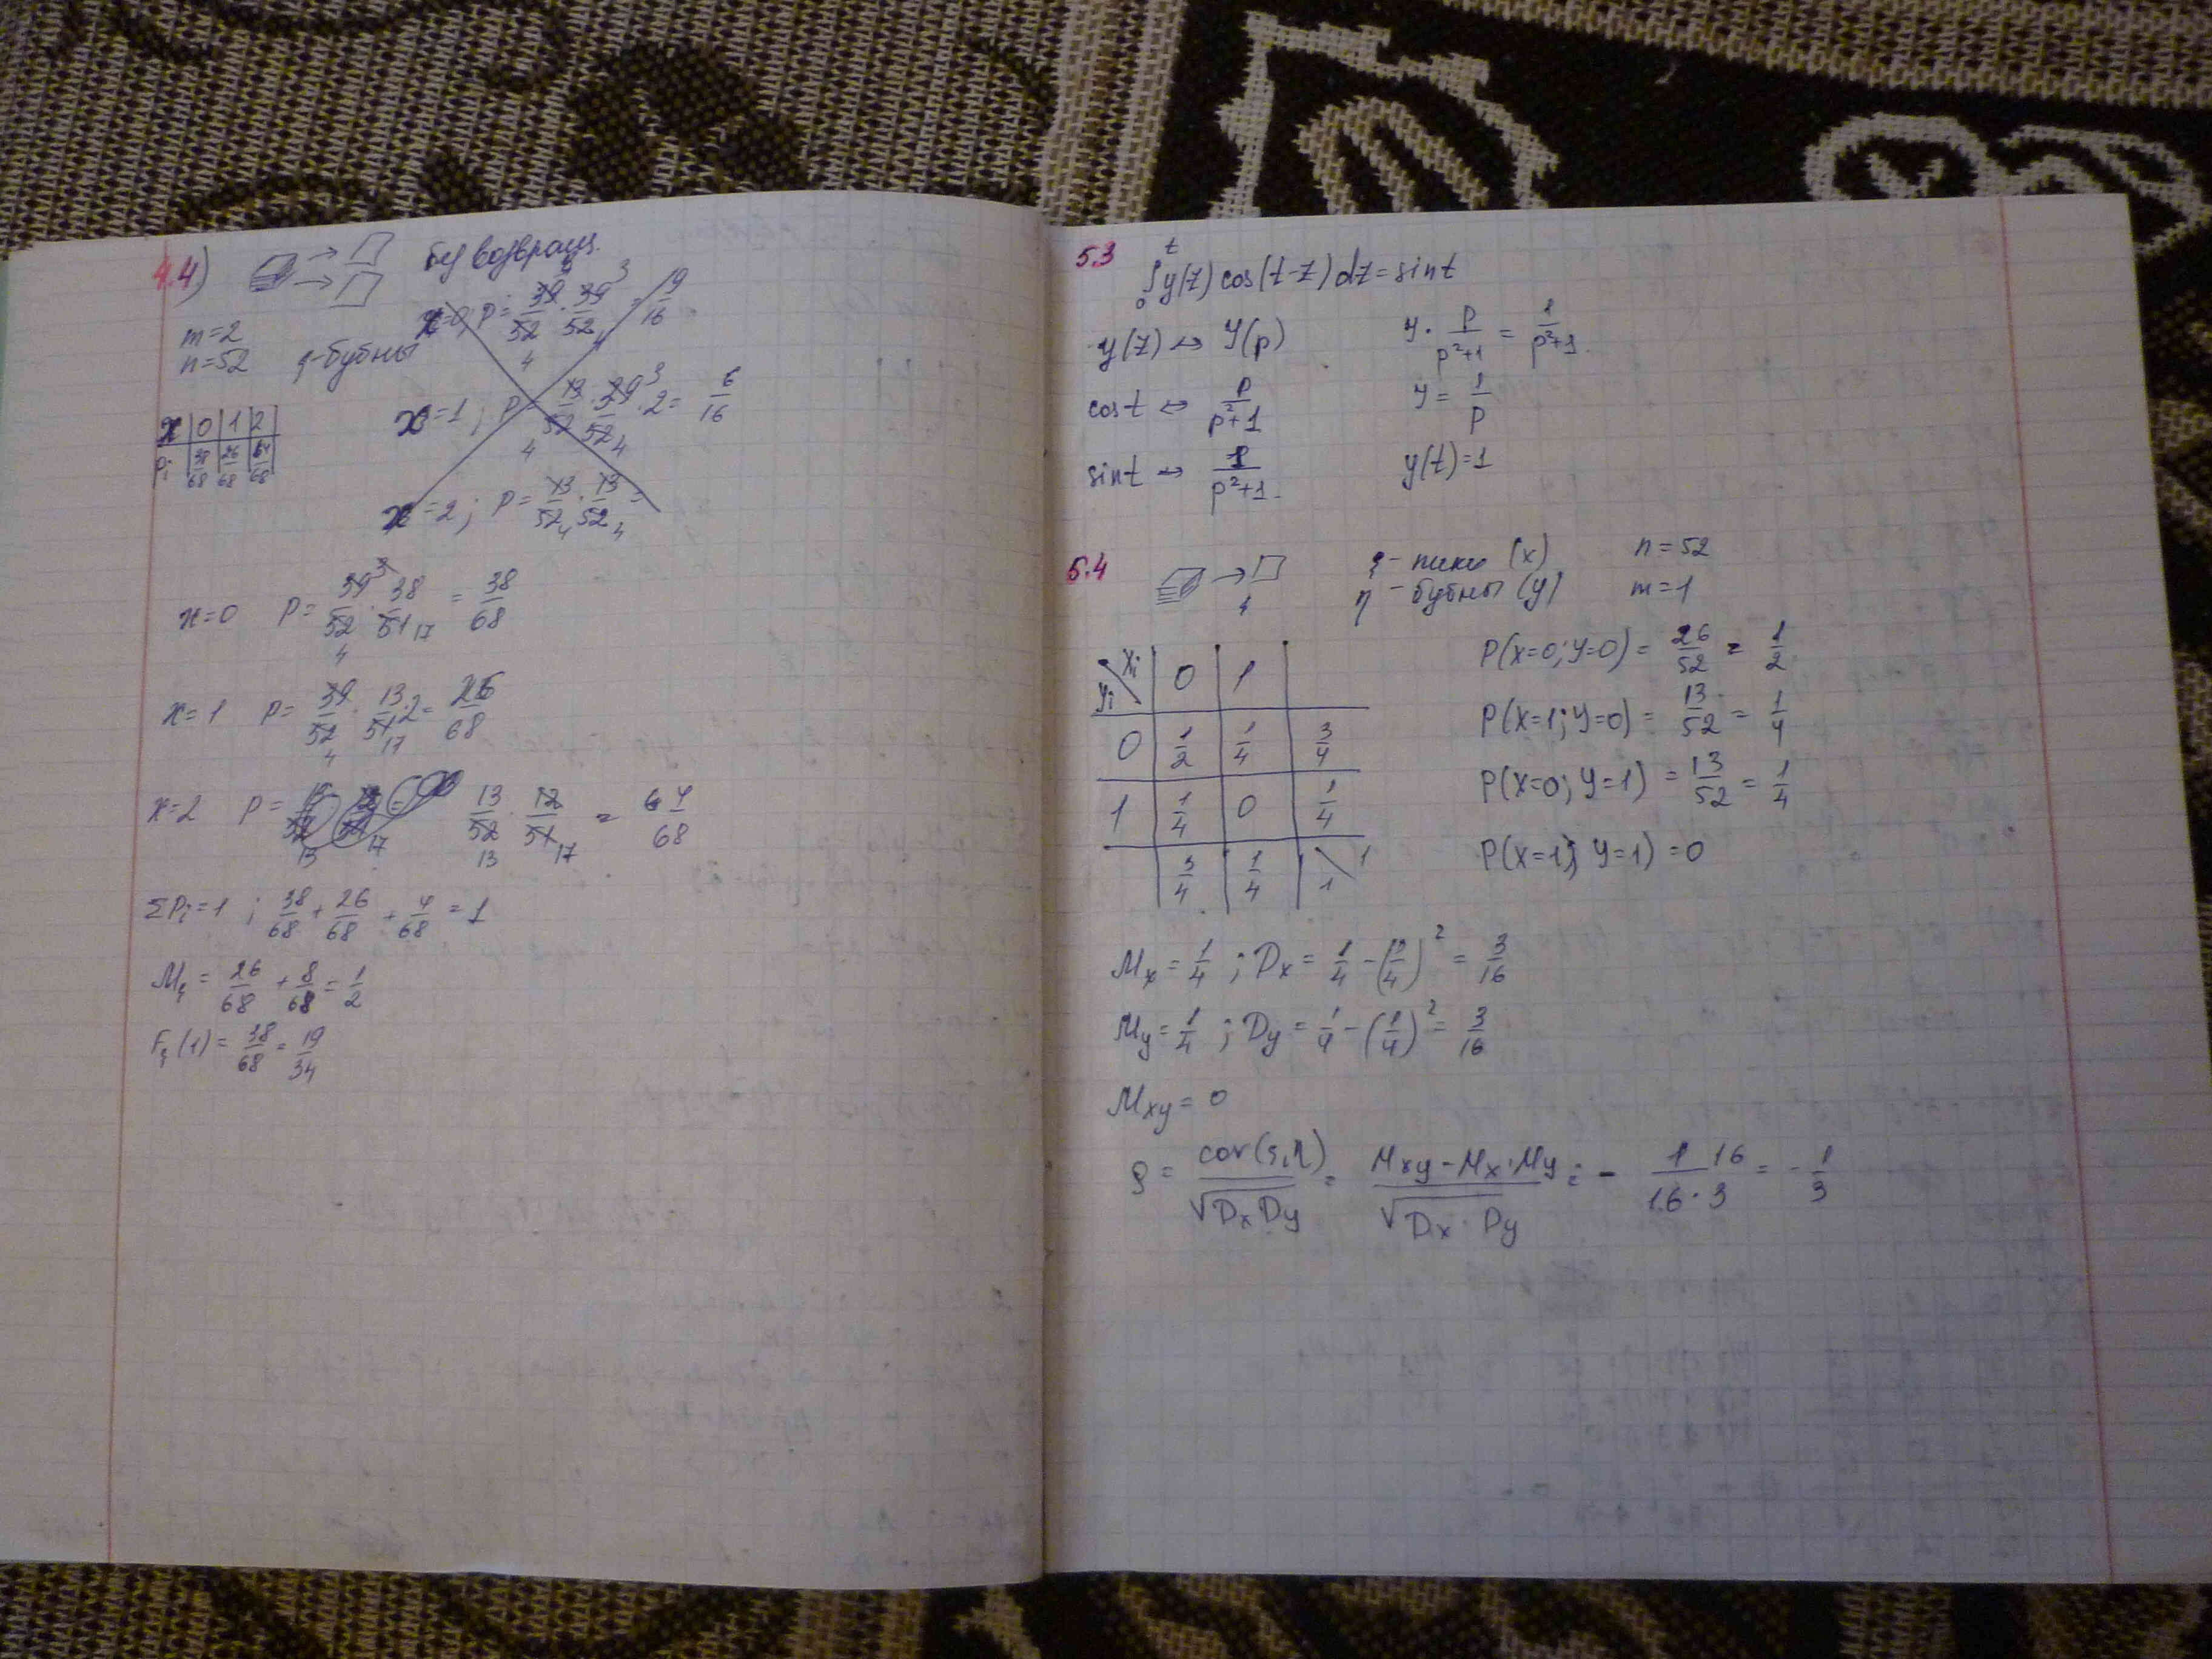 4.4) без возвращ.
m=2
n=52 ξ-бубны
x=0, p= 39/52 · 39/52 = 19/16
x=1; p= 13/52 · 39/52 · 2 = 6/16
x=2; p= 13/52 · 13/52 =
x | 0 | 1 | 2
pi | 38/68 | 26/68 | 4/68
x=0 p= 39/52 · 38/51 = 38/68
x=1 p= 39/52 · 13/51 · 2 = 26/68
x=2 p= 13/52 · 12/51 = 4/68
ΣPi=1 ; 38/68 + 26/68 + 4/68 = 1
Mξ = 26/68 + 8/68 = 1/2
Fξ(1) = 38/68 = 19/34
5.3 ∫₀ᵗ y(τ) cos(t-τ) dτ = sint
y(τ) ↔ Y(p) Y · p/(p²+1) = 1/(p²+1)
cost ↔ p/(p²+1) Y = 1/p
sint ↔ 1/(p²+1) y(t)=1
5.4 1 ξ - пики (x) n=52
η - бубны (y) m=1
yi \ xi | 0 | 1 |
0 | 1/2 | 1/4 | 3/4
1 | 1/4 | 0 | 1/4
| 3/4 | 1/4 | 1 \ 1
P(x=0; y=0) = 26/52 = 1/2
P(x=1; y=0) = 13/52 = 1/4
P(x=0; y=1) = 13/52 = 1/4
P(x=1; y=1) = 0
Mx = 1/4 ; Dx = 1/4 - (1/4)² = 3/16
My = 1/4 ; Dy = 1/4 - (1/4)² = 3/16
Mxy = 0
ρ = cov(ξ,η)/√(Dx Dy) = (Mxy - Mx·My)/√(Dx · Dy) = - 1 16/(16·3) = - 1/3